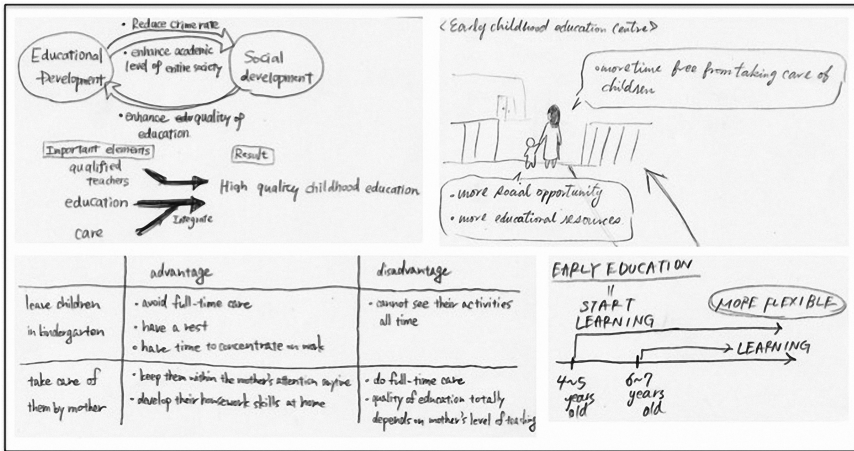 Reduce crime rate
Educational
Development
• enhance academic
level of entire society
Social
development
• enhance quality of
education
Important elements
Result
qualified
teachers
education
care
Integrate
High quality childhood education
<Early childhood education centre>
• more time free from taking care of
children
• more social opportunity
• more educational resources
advantage
disadvantage
leave children
in kindergarten
• avoid full-time care
• have a rest
• have time to concentrate on work
• cannot see their activities
all time
take care of
them by mother
• keep them within the mother's attention anytime
• develop their housework skills at home
• do full-time care
• quality of education totally
depends on mother's level of teaching
EARLY EDUCATION
START
LEARNING
MORE FLEXIBLE
LEARNING
4~5
years
old
6~7
years
old